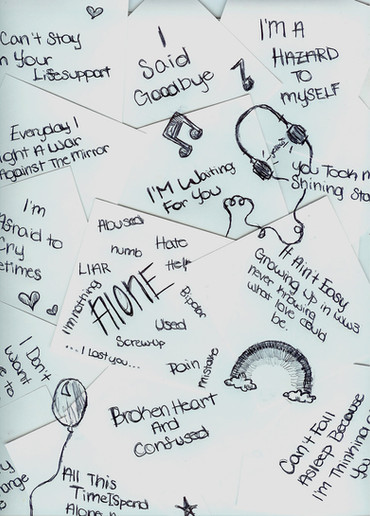 Can't Stay
n Your
Lifesupport
I
Said
Goodbye
I'm A
HAZARD
TO
MYSELF
Everyday I
ight A War
Against The Mirror
I'M Waiting
For You
You Took m
Shining Sta
I'm
Afraid to
Cry
etimes
Abused
numb
Hate
Help
LIAR
I'm nothing
ALONE
Bipolar
Used
Screwup
...I Lost you...
Pain
mistake
It Ain't Easy
Growing up in WW3
never knowing
what love could
be.
I Don't
Want
e to
Broken Heart
And
Confused
Can't Fall
Asleep Because
I'm Thinking o
You
y
ange
e
All This
Time I Spend
Alone